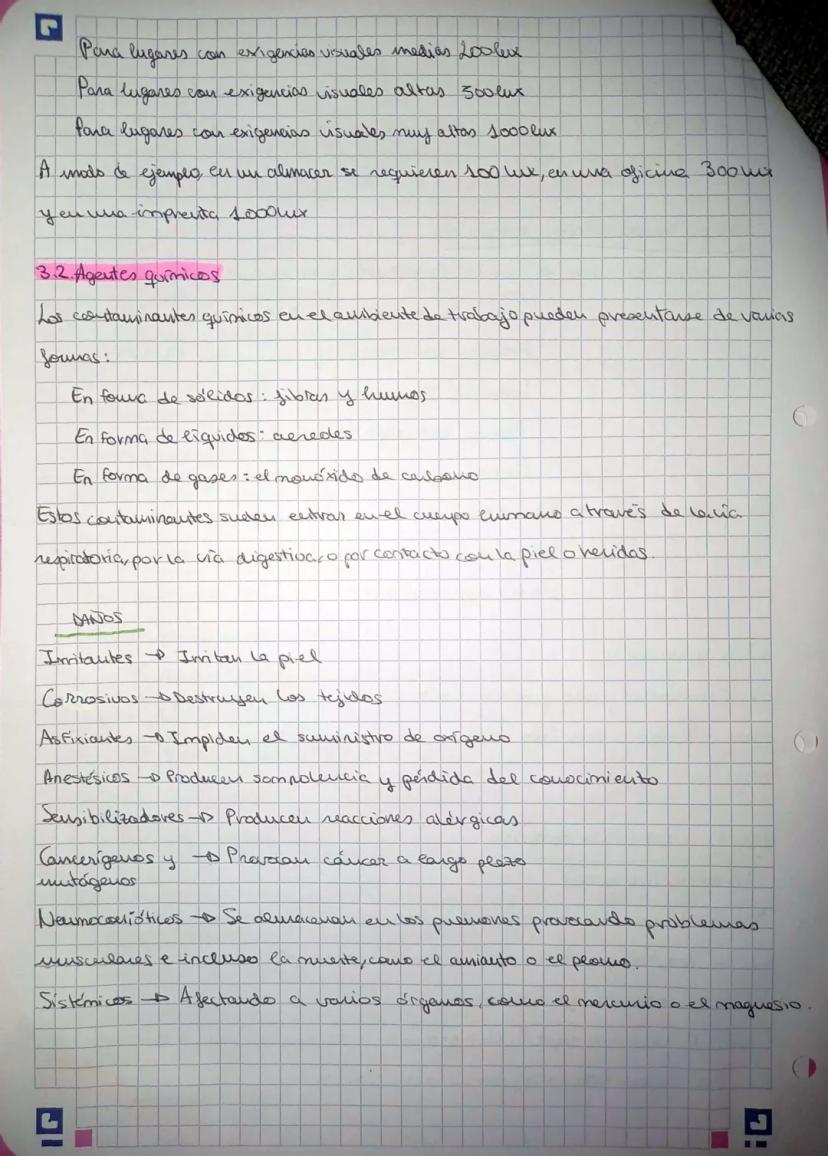 Para lugares con exigencias visuales medias 200lux
Para lugares con exigencias visuales altas 500lux
Para lugares con exigencias visuales muy altas 1000lux
A modo de ejemplo, en un almacer se requieren 100 lux, en una oficina 300lux
y en una imprenta 1000lux
3.2. Agentes químicos
Los contaminantes químicos en el ambiente de trabajo pueden presentarse de varias
formas:
En forma de sólidos: fibras y humos
En forma de líquidos: aeredes
En forma de gases: el monóxido de carbono
Estos contaminantes suelen entrar en el cuerpo humano a través de la vía
respiratoria, por la vía digestiva, o por contacto con la piel o heridas.
DAÑOS
Irritantes → Irritan la piel
Corrosivos → Destruyen los tejidos
Asfixiantes → Impiden el suministro de oxígeno
Anestésicos → Producen somnolencia y pérdida del conocimiento
Sensibilizadores → Producen reacciones alérgicas
Cancerígenos y → Provocan cáncer a largo plazo
mutágenos
Neumoconióticos → Se almacenan en los pulmones provocando problemas
musculares e incluso la muerte, como el amianto o el plomo.
Sistémicos → Afectando a varios órganos, como el mercurio o el magnesio.